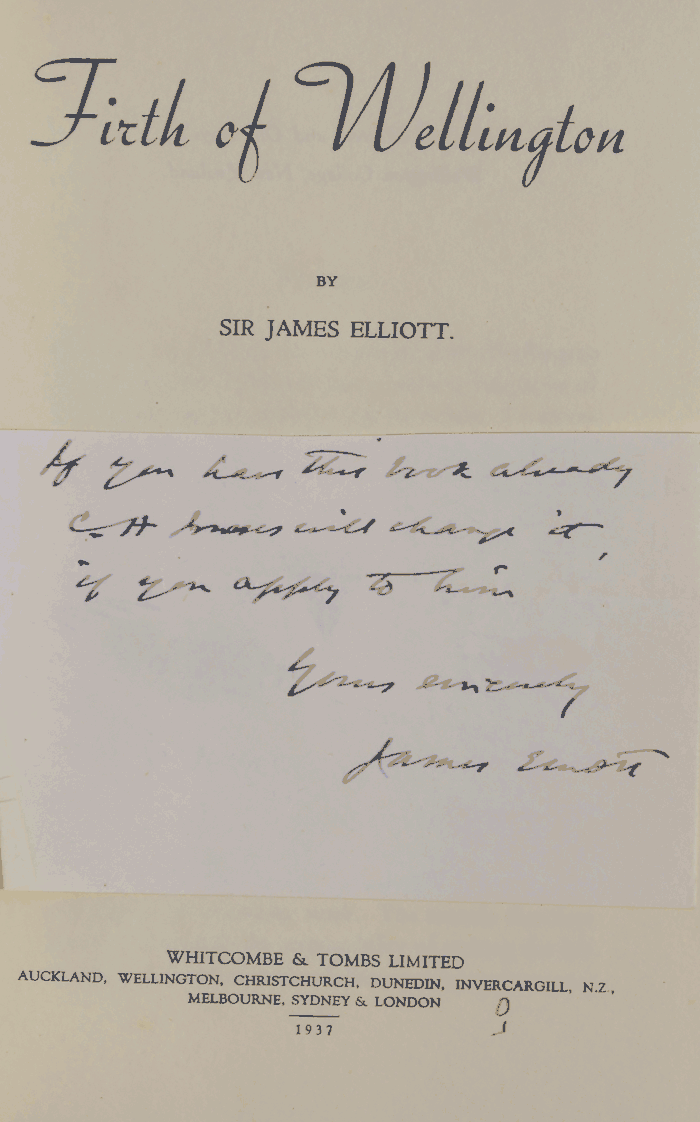 Firth of Wellington
BY
SIR JAMES ELLIOTT.
If you have this book already
C. H will change it,
if you apply to him
Yours sincerely
James Elliott
WHITCOMBE & TOMBS LIMITED
AUCKLAND, WELLINGTON, CHRISTCHURCH, DUNEDIN, INVERCARGILL, N.Z.,
MELBOURNE, SYDNEY & LONDON
1937